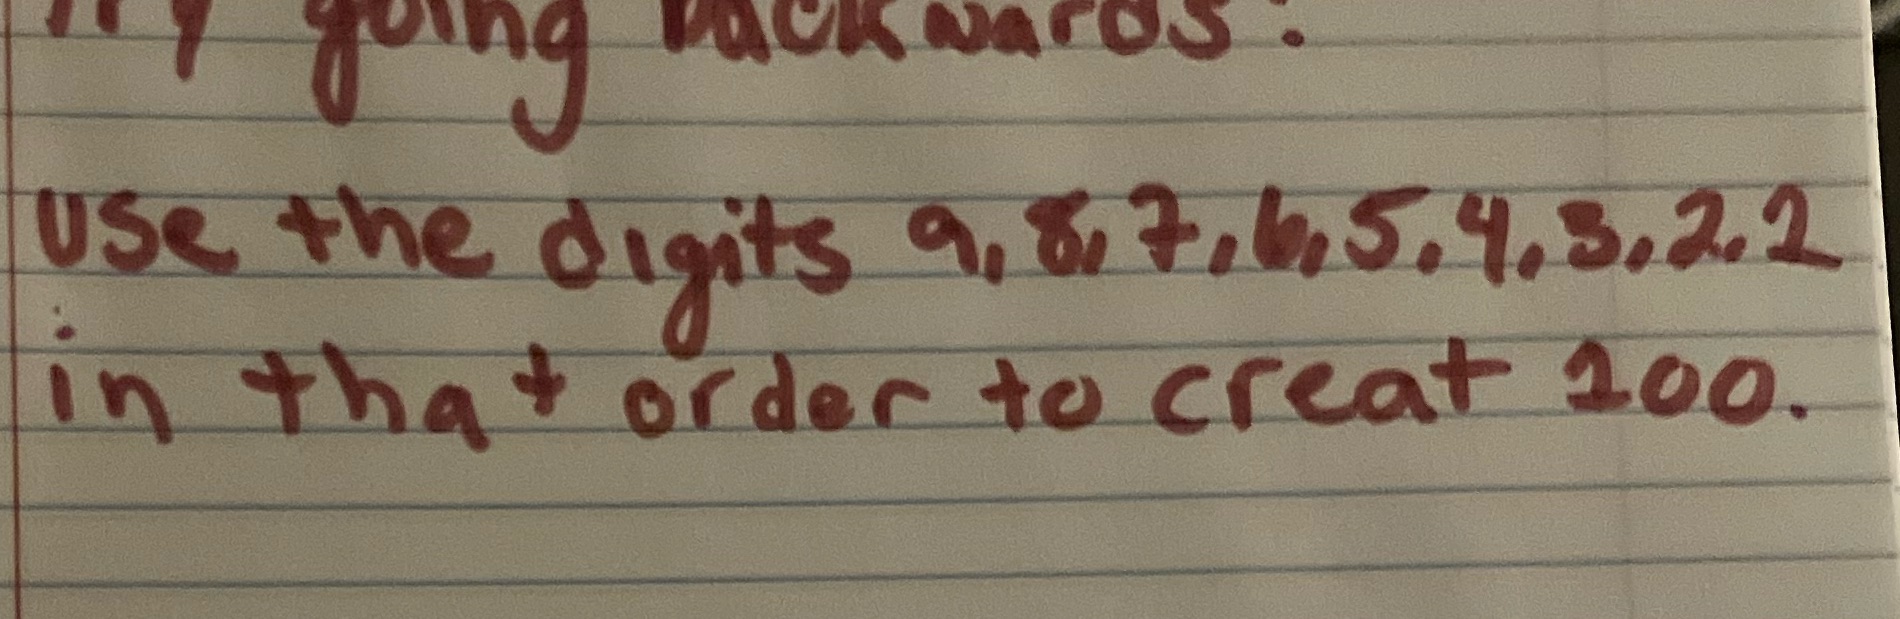 Try going backwards:
Use the digits 9, 8, 7, 6, 5, 4, 3, 2, 1
in that order to creat 100.